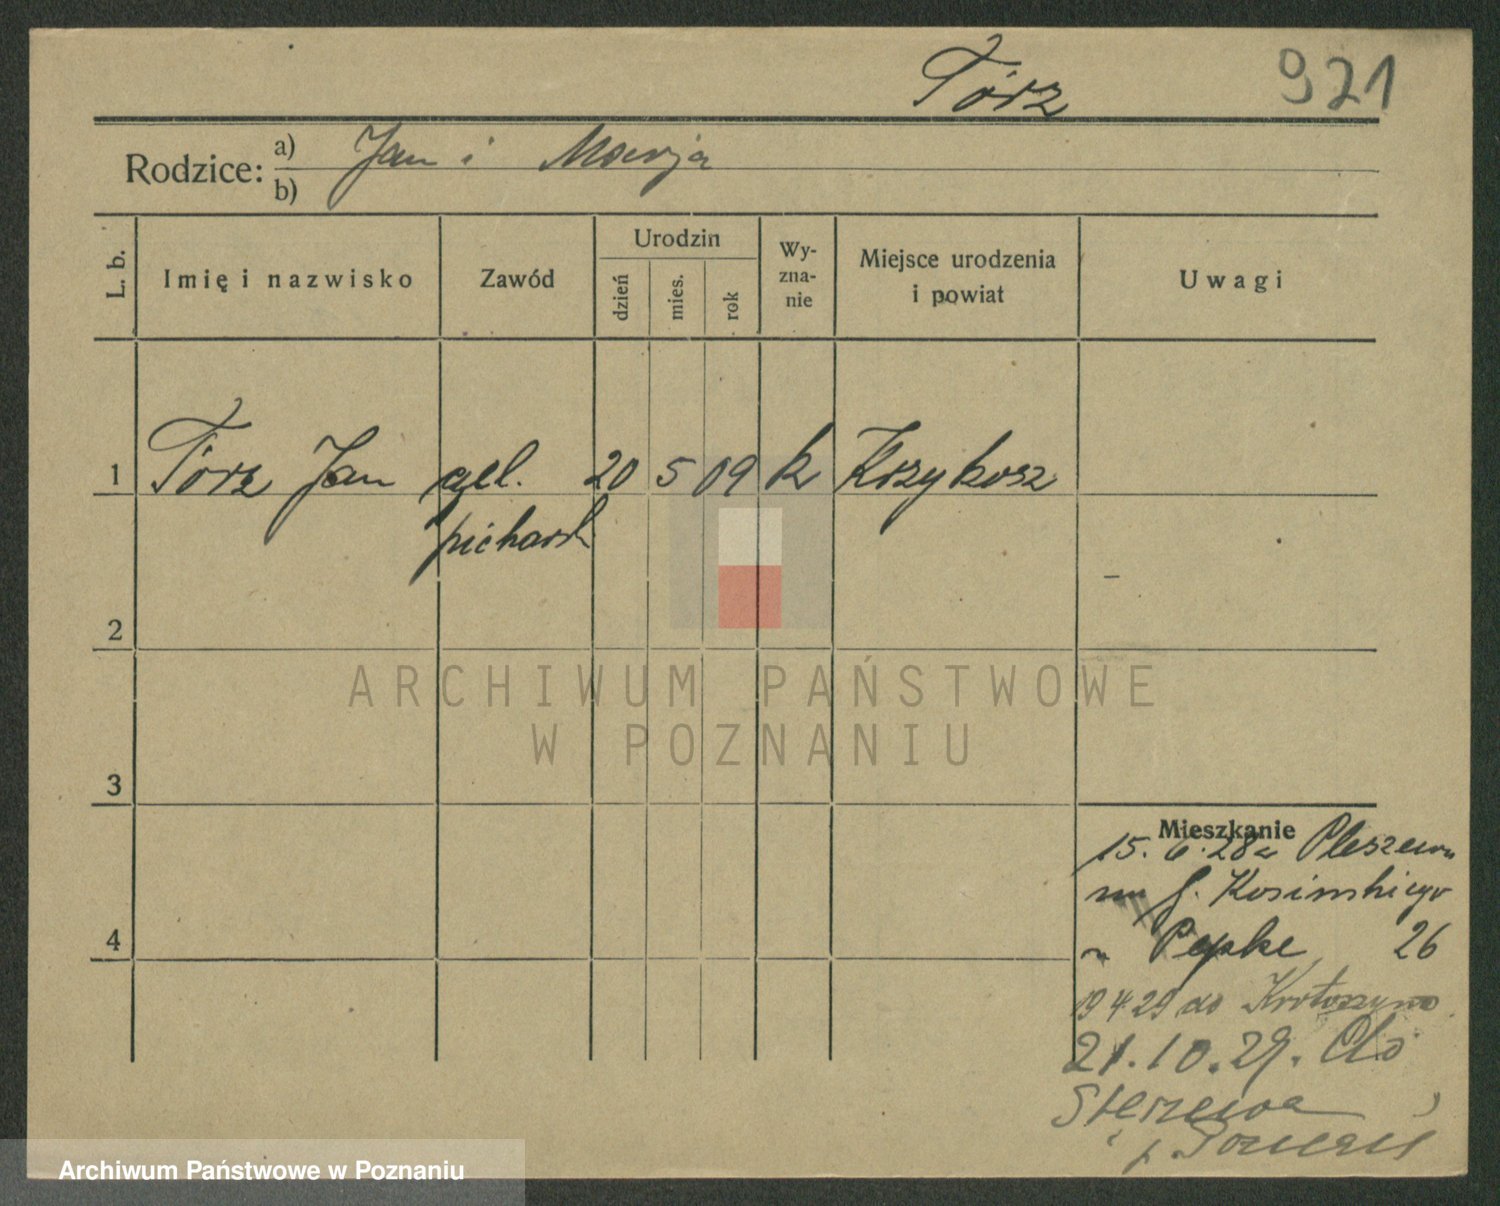 Tórz 921
Rodzice: a) Jan i Marja
b)
L. b. Imię i nazwisko Zawód Urodzin dzień mies. rok Wy-zna-nie Miejsce urodzenia i powiat Uwagi
1 Tórz Jan czel. 20 5 09 k Krzykosz
piekarsk
2
3
4
Mieszkanie
15. 6. 28 Pleszewa
J. Kosinskiego
Pepke 26
19 4 29 do Krotoszyna
21.10.29. do
p. Poznań
ARCHIWUM PAŃSTWOWE
W POZNANIU
Archiwum Państwowe w Poznaniu